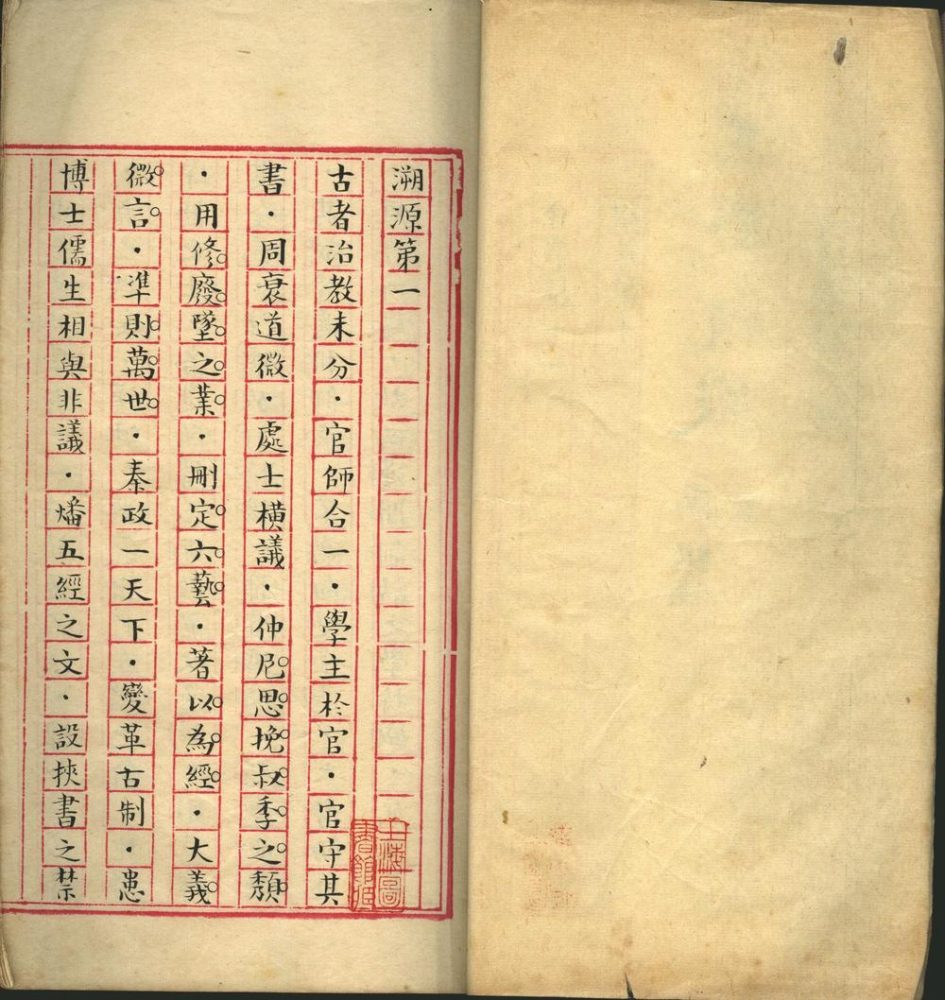 溯源第一
古者治教未分·官師合一·學主於官·官守其
書·周衰道微·處士横議·仲尼思挽叔季之頽
·用修廢墜之業·刪定六藝·著以為經·大義
微言·準則萬世·秦政一天下·變革古制·患
博士儒生相與非議·燔五經之文·設挾書之禁